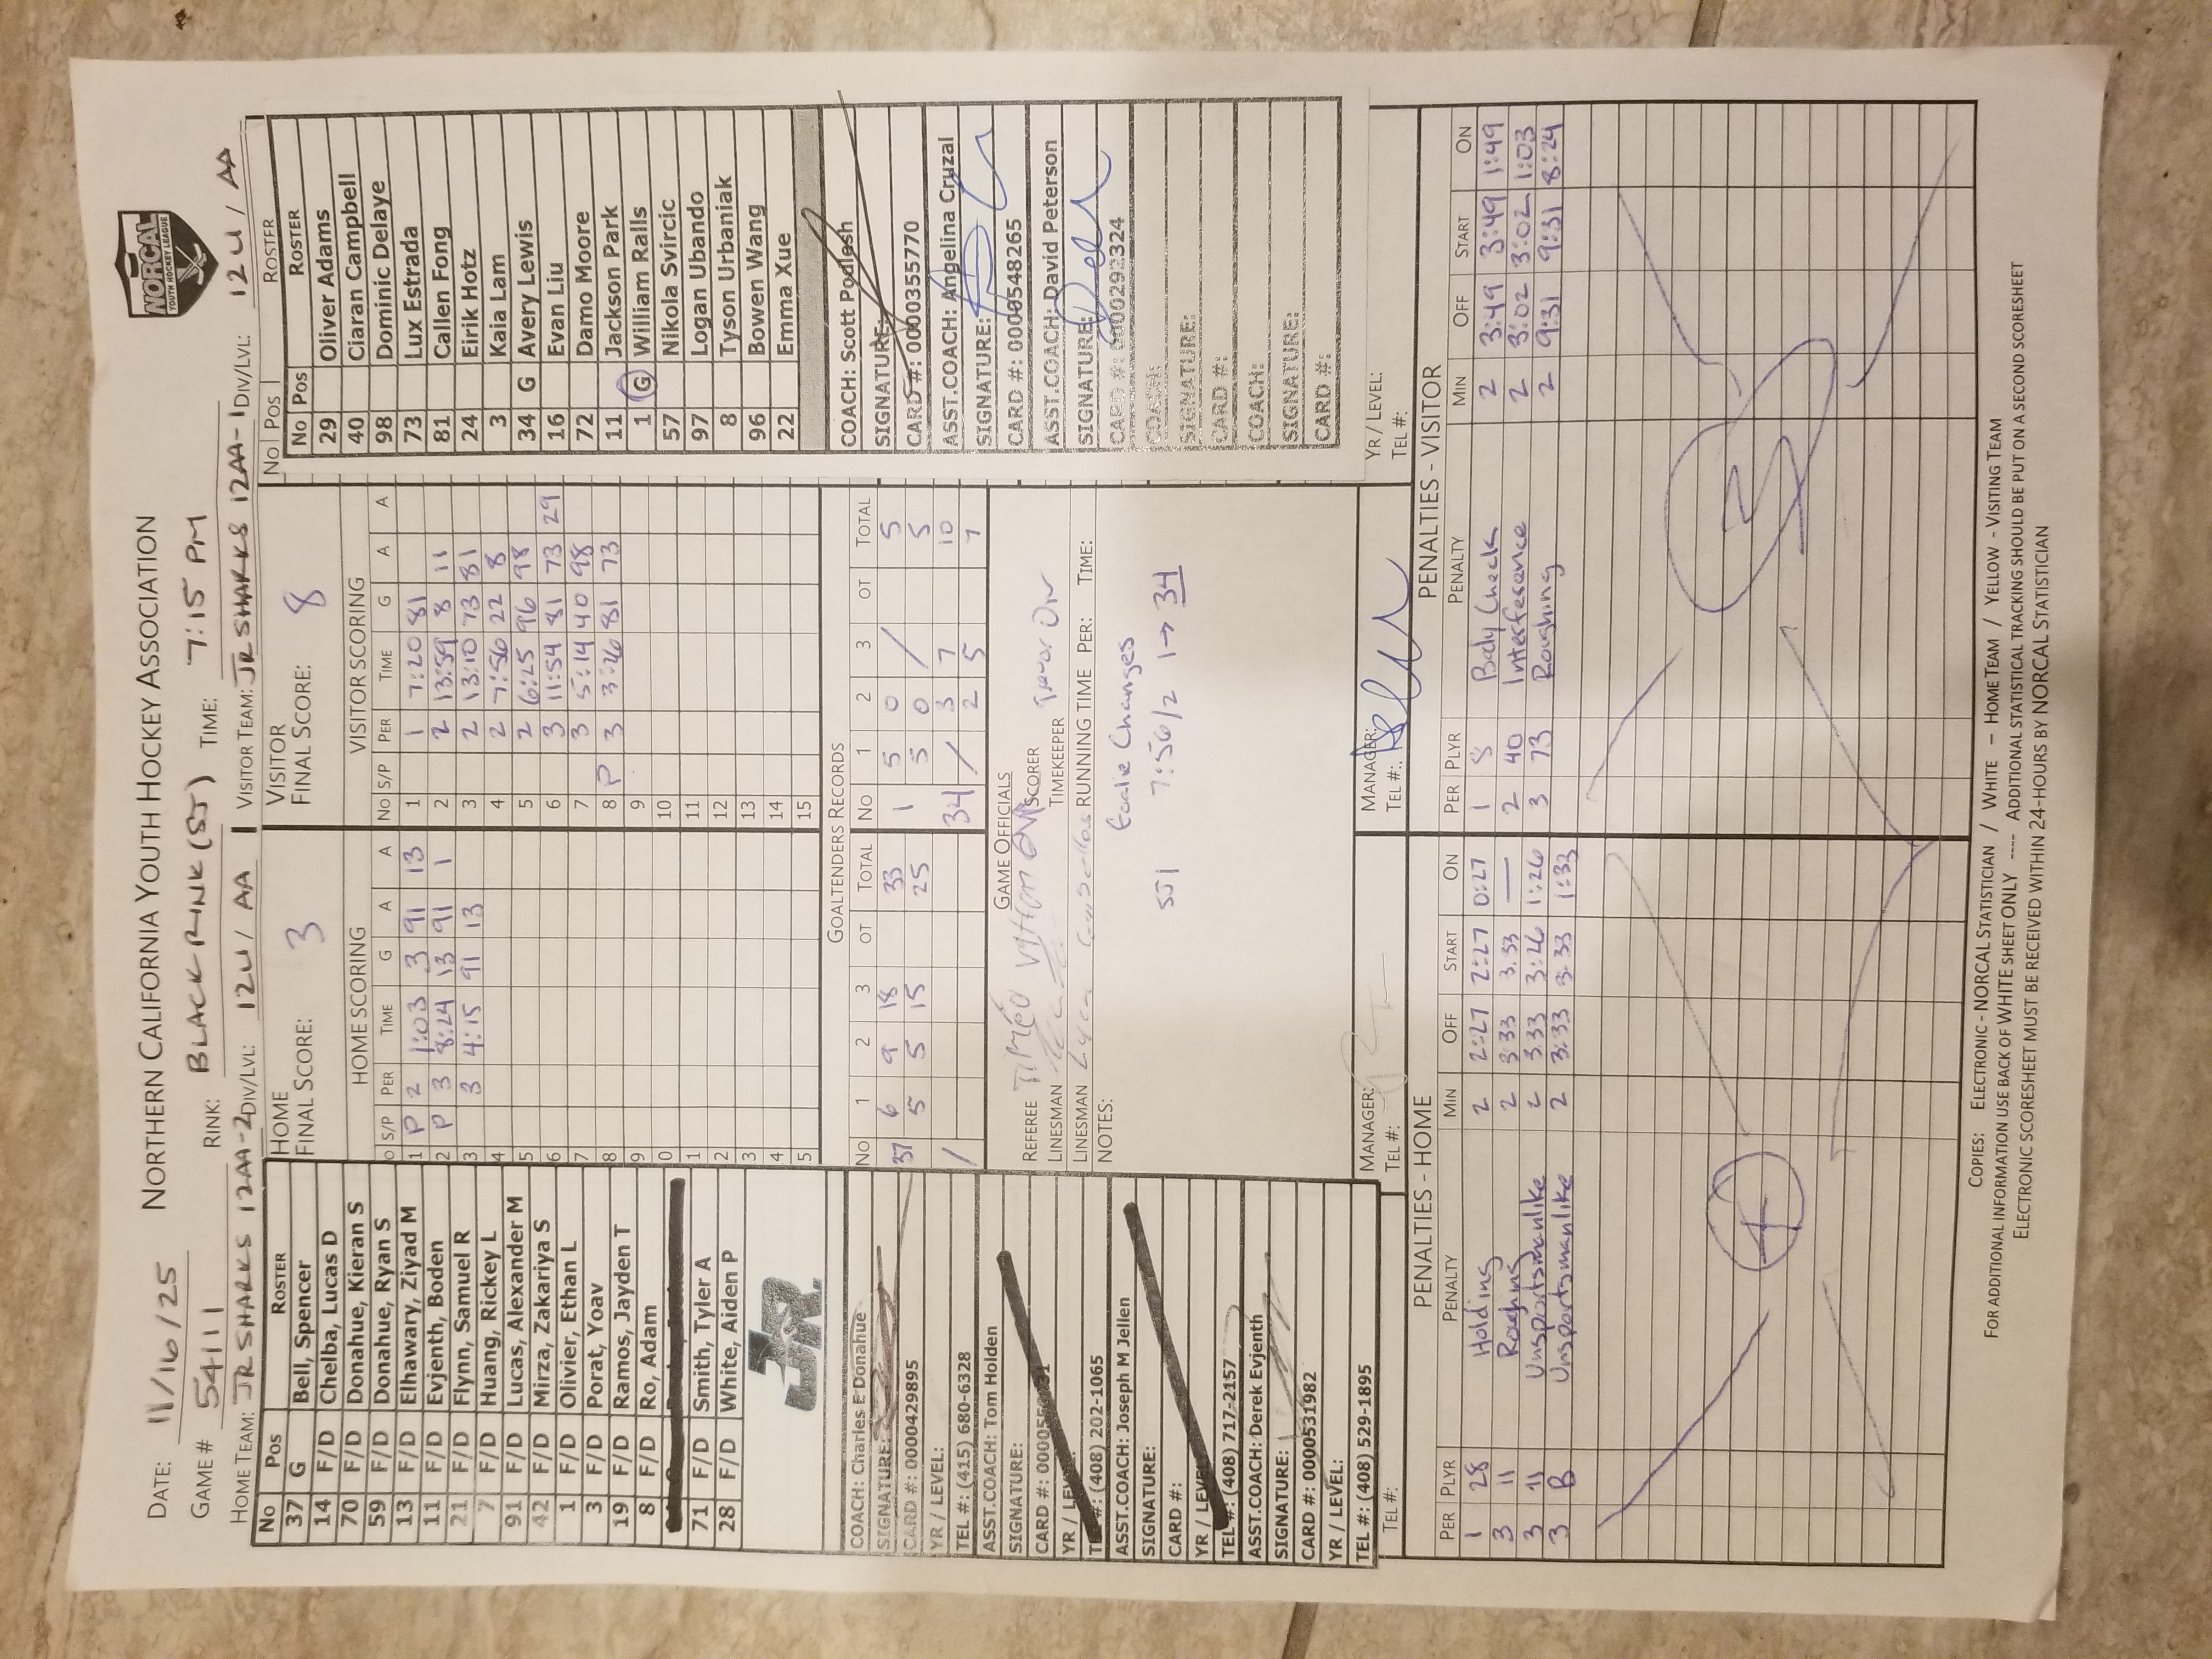 DATE: 11/16/25 NORTHERN CALIFORNIA YOUTH HOCKEY ASSOCIATION
NORCAL
YOUTH HOCKEY LEAGUE
GAME # 54111 RINK: BLACK RINK (SJ) TIME: 7:15 PM
HOME TEAM: JR SHARKS 12AA-2 DIV/LVL: 12U / AA VISITOR TEAM: JR SHARKS 12AA-1 DIV/LVL: 12U / AA
No Pos ROSTER
37 G Bell, Spencer
14 F/D Chelba, Lucas D
70 F/D Donahue, Kieran S
59 F/D Donahue, Ryan S
13 F/D Elhawary, Ziyad M
11 F/D Evjenth, Boden
21 F/D Flynn, Samuel R
7 F/D Huang, Rickey L
91 F/D Lucas, Alexander M
42 F/D Mirza, Zakariya S
1 F/D Olivier, Ethan L
3 F/D Porat, Yoav
19 F/D Ramos, Jayden T
8 F/D Ro, Adam
71 F/D Smith, Tyler A
28 F/D White, Aiden P
JR
COACH: Charles E Donahue
SIGNATURE:
CARD #: 0000429895
YR / LEVEL:
TEL #: (415) 680-6328
ASST.COACH: Tom Holden
SIGNATURE:
CARD #:
YR / LEVEL:
TEL #: (408) 202-1065
ASST.COACH: Joseph M Jellen
SIGNATURE:
CARD #:
YR / LEVEL:
TEL #: (408) 717-2157
ASST.COACH: Derek Evjenth
SIGNATURE:
CARD #: 0000531982
YR / LEVEL:
TEL #: (408) 529-1895
TEL #:
HOME
FINAL SCORE: 3
HOME SCORING
S/P PER TIME G A A
1 P 2 1:03 3 91 13
2 P 3 8:24 13 91 1
3 3 4:15 91 13
4
5
6
7
8
9
0
1
2
3
4
5
VISITOR
FINAL SCORE: 8
VISITOR SCORING
No S/P PER TIME G A A
1 1 7:20 81
2 2 13:59 8 11
3 2 13:10 73 81
4 2 7:56 22 8
5 2 6:25 96 98
6 3 11:54 81 73 29
7 3 5:14 40 98
8 P 3 3:26 81 73
9
10
11
12
13
14
15
GOALTENDERS RECORDS
No 1 2 3 OT TOTAL No 1 2 3 OT TOTAL
37 6 9 18 33 1 5 0 / 5
5 5 15 25 5 0 5
/ 34 / 3 7 10
2 5 7
GAME OFFICIALS
REFEREE SCORER
LINESMAN TIMEKEEPER
LINESMAN RUNNING TIME PER: TIME:
NOTES: Goalie Changes
SJ1 7:56/2 1 → 34
MANAGER: MANAGER:
TEL #: TEL #:
No Pos ROSTER
No Pos ROSTER
29 Oliver Adams
40 Ciaran Campbell
98 Dominic Delaye
73 Lux Estrada
81 Callen Fong
24 Eirik Hotz
3 Kaia Lam
34 G Avery Lewis
16 Evan Liu
72 Damo Moore
11 Jackson Park
1 G William Ralls
57 Nikola Svircic
97 Logan Ubando
8 Tyson Urbaniak
96 Bowen Wang
22 Emma Xue
COACH: Scott Podlesh
SIGNATURE:
CARD #: 0000355770
ASST.COACH: Angelina Cruzal
SIGNATURE:
CARD #: 0000548265
ASST.COACH: David Peterson
SIGNATURE:
CARD #: 0000292324
COACH:
SIGNATURE:
CARD #:
COACH:
SIGNATURE:
CARD #:
YR / LEVEL:
TEL #:
PENALTIES - HOME
PER PLYR PENALTY MIN OFF START ON
1 28 Holding 2 2:27 2:27 0:27
3 11 Roughing 2 3:33 3:33 —
3 11 Unsportsmanlike 2 3:33 3:26 1:26
3 B Unsportsmanlike 2 3:33 3:33 1:33
PENALTIES - VISITOR
PER PLYR PENALTY MIN OFF START ON
1 8 Body Check 2 3:49 3:49 1:49
2 40 Interference 2 3:02 3:02 1:03
3 73 Roughing 2 9:31 9:31 8:24
COPIES: ELECTRONIC - NORCAL STATISTICIAN / WHITE - HOME TEAM / YELLOW - VISITING TEAM
FOR ADDITIONAL INFORMATION USE BACK OF WHITE SHEET ONLY ---- ADDITIONAL STATISTICAL TRACKING SHOULD BE PUT ON A SECOND SCORESHEET
ELECTRONIC SCORESHEET MUST BE RECEIVED WITHIN 24-HOURS BY NORCAL STATISTICIAN